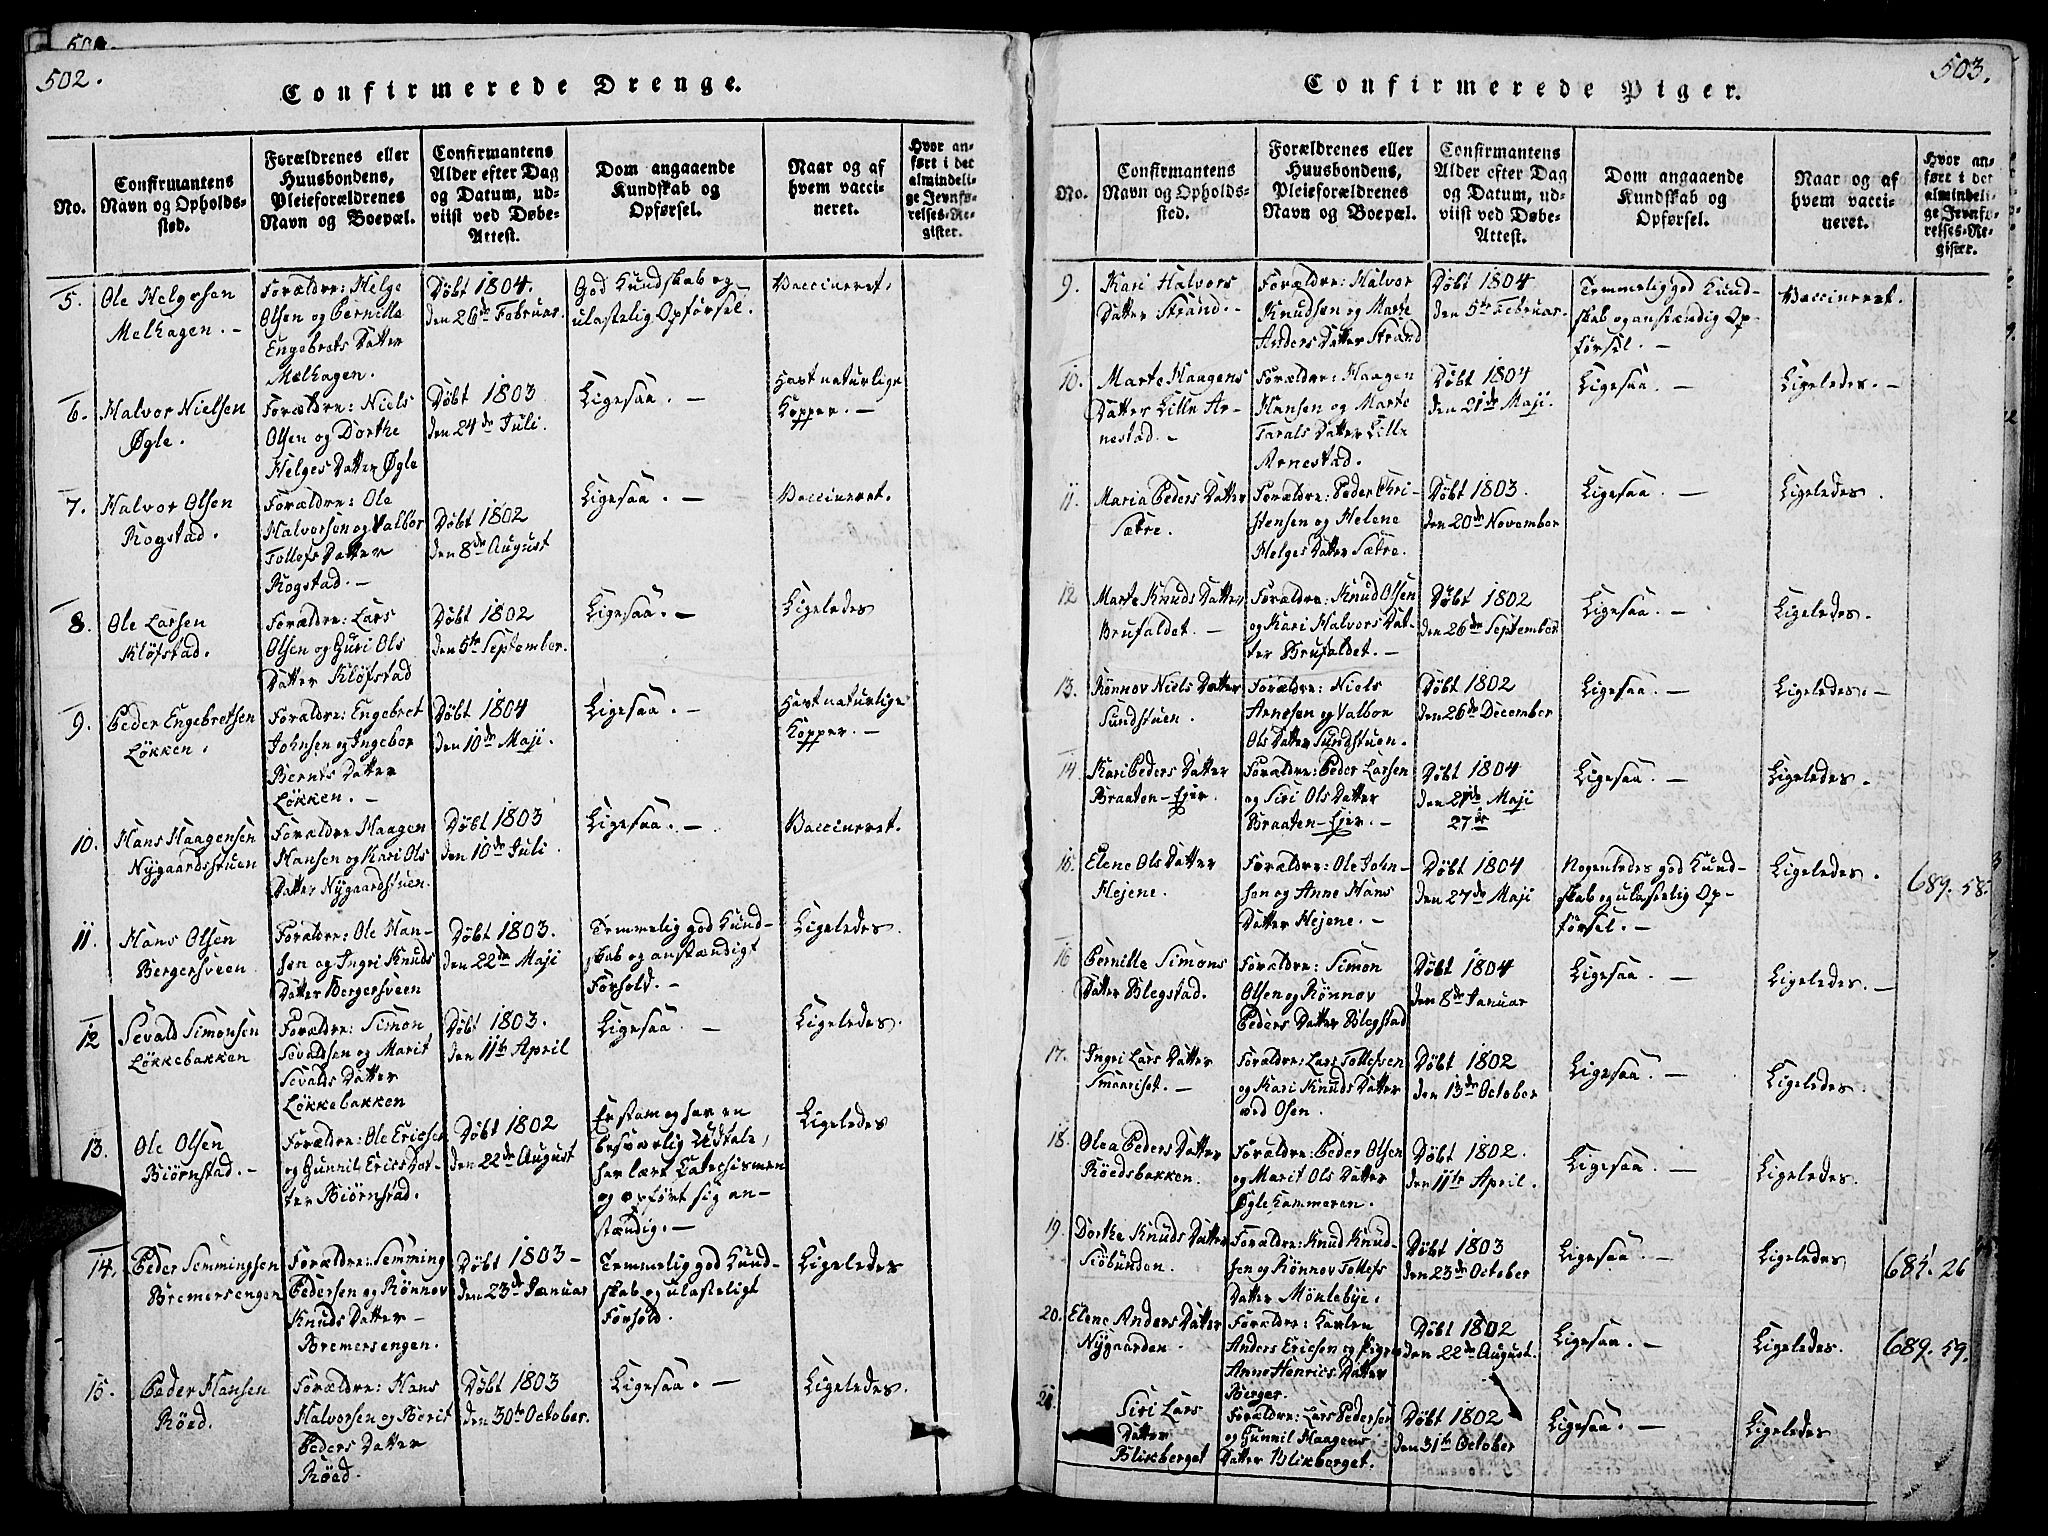 502.
Confirmerede Drenge.
No.
Confirmantens
Navn og Opholds-
sted.
Forældrenes eller
Huusbondens,
Pleieforældrenes
Navn og Boepæl.
Confirmantens
Alder efter Dag
og Datum, ud-
viist ved Døbe-
Attest.
Dom angaaende
Kundskab og
Opførsel.
Naar og af
hvem vacci-
neret.
Hvor an-
ført i det
almindeli-
ge Jevnfø-
relses-Re-
gister.
5.
Ole Helgesen
Melhagen. -
Forældre: Helge
Olsen og Pernille
Engebrets Datter
Melhagen.
Døbt 1804.
den 26de Februar.
God Kundskab og
ulastelig Opførsel.
Vaccineret.
6.
Halvor Nielsen
Øgle.
Forældre: Niels
Olsen og Dorthe
Helges Datter Øgle
Døbt 1803
den 24de Juli.
Ligesaa. -
Havt naturlige
Kopper. -
7.
Halvor Olsen
Rogstad.
Forældre: Ole
Halvorsen og Valbor
Tollefs Datter
Rogstad. -
Døbt 1802
den 8de August
Ligesaa. -
Vaccineret.
8.
Ole Larsen
Kløfstad.
Forældre: Lars
Olsen og Guri Ols
Datter Kløfstad
Døbt 1802
den 5te September.
Ligesaa. -
Ligeledes
9.
Peder Engebretsen
Løkken.
Forældre: Engebret
Johnsen og Ingebor
Bernts Datter
Løkken. -
Døbt 1804
den 10de Maji.
Ligesaa. -
Havt naturlige
Kopper. -
10.
Hans Haagensen
Nygaardstuen
Forældre Haagen
Hansen og Kari Ols
Datter Nygaardstuen.
Døbt 1803
den 10de Juli.
Ligesaa. -
Vaccineret.
11.
Hans Olsen
Bergersveen
Forældre: Ole Han-
sen og Ingri Knuds
Datter Bergersveen
Døbt 1803.
den 22de Maji
Temmelig god Kund-
skab og anstændigt
Forhold. -
Ligeledes.
12
Sevald Simonsen
Løkkebakken
Forældre: Simon
Sevaldsen og Marit
Sevalds Datter
Løkkebakken
Døbt 1803.
den 11te April
Ligesaa. -
Ligeledes.
13.
Ole Olsen
Biørnstad. -
Forældre: Ole Ericsen
og Gunnil Erics Dat-
ter Biørnstad.
Døbt 1802
den 22de August
Er stam og har en
besværlig Udtale,
har lært Catechismen
og opført sig an-
stændig. -
Ligeledes
14.
Peder Semmingsen
Bremersengen
Forældre: Semming
Pedersen og Rønnov
Knuds Datter -
Bremersengen.
Døbt 1803 -
den 23de Januar
Temmelig god Kund-
skab og ulasteligt
Forhold.
Ligeledes
15.
Peder Hansen
Røed.
Forældre: Hans
Halvorsen og Berit
Peders Datter
Røed.
Døbt 1803
den 30te October.
Ligesaa. -
Ligeledes.
503.
Confirmerede Piger.
No.
Confirmantens
Navn og Opholds-
sted.
Forældrenes eller
Huusbondens,
Pleieforældrenes
Navn og Boepæl.
Confirmantens
Alder efter Dag
og Datum, ud-
viist ved Døbe-
Attest.
Dom angaaende
Kundskab og
Opførsel.
Naar og af
hvem vacci-
neret.
Hvor an-
ført i det
almindeli-
ge Jevnfø-
relses-Re-
gister.
9.
Kari Halvors
Datter Strand. -
Forældre: Halvor
Knudsen og Marte
Anders Datter Strand
Døbt 1804
den 5te Februar.
Temmelig god Kund-
skab og anstændig Op-
førsel. -
Vaccineret.
10.
Marte Haagens
Datter Lille Ar-
nestad. -
Forældre: Haagen
Hansen og Marte
Tarals Datter Lille
Arnestad.
Døbt 1804
den 21de Maji.
Ligesaa. -
Ligeledes. -
11.
Maria Peders Datter
Sætre.
Forældre: Peder Chri-
stensen og Helene
Helges Datter Sætre.
Døbt 1803.
den 20de November
Ligesaa. -
Ligeledes.
12
Marte Knuds Datter
Brufaldet. -
Forældre: Knud Olsen
og Kari Halvors Dat-
ter Brufaldet. -
Døbt 1802
den 26de September
Ligesaa. -
Ligeledes.
13.
Rønnov Niels Datter
Sundstuen.
Forældre: Niels
Arnesen og Valbor
Ols Datter Sundstuen.
Døbt 1802
den 26de December
Ligesaa. -
Ligeledes. -
14.
Kari Peders Datter
Braaten-Ejer.
Forældre: Peder Larsen
og Siri Ols Datter
Braaten-Ejer. -
Døbt 1804
den 21de Maji
27de
Ligesaa. -
Ligeledes.
15.
Elene Ols Datter
Hejene.
Forældre: Ole John-
sen og Anne Hans
Datter Hejene. -
Døbt 1804
den 27de Maji
Nogenledes god Kund-
skab og ulastelig Op-
førsel. -
Ligeledes.
689. 58.
16
Pernille Simons
Datter Blegstad.
Forældre: Simon
Olsen og Rønnov
Peders Datter Blegstad
Døbt 1804
den 8de Januar
Ligesaa. -
Ligeledes. -
17.
Ingri Lars Datter
Smaariset. -
Forældre: Lars Tollefsen
og Kari Knuds Datter
ved Osen.
Døbt 1802
den 13de October
Ligesaa. -
Ligeledes.
18.
Olea Peders Datter
Røedsbakken.
Forældre: Peder Olsen
og Marit Ols Datter
Øgle Kammeren.
Døbt 1802.
den 11te April.
Ligesaa. -
Ligeledes.
19.
Dorthe Knuds Datter
Siøbunden.
Forældre: Knud Knud-
sen og Rønnov Tollefs
Datter Mønlebye.
Døbt 1803
den 23de October
Ligesaa. -
Ligeledes
26
20.
Elene Anders Datter
Nygaarden.
Forældre: Karlen
Anders Ericsen og Pigen
Anne Henrics Datter
Berger.
Døbt 1802
den 22de August.
Ligesaa. -
Ligeledes.
689. 59.
21.
Siri Lars
Datter
Blikberget
Forældre: Lars Pedersen
og Gunnil Haagens
Datter Blikberget.
Døbt 1802
den 31te October
Ligesaa. -
Ligeledes